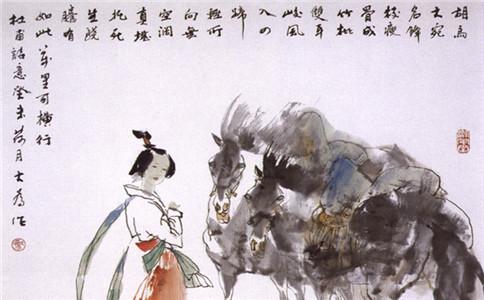 胡馬
大宛
名鋒
棱瘦
骨成
竹批
雙耳
峻風
入四
蹄
輕所
向無
空闊
真堪
托死
生驍
騰有
如此萬里可横行
杜甫詩意癸未荷月大為作